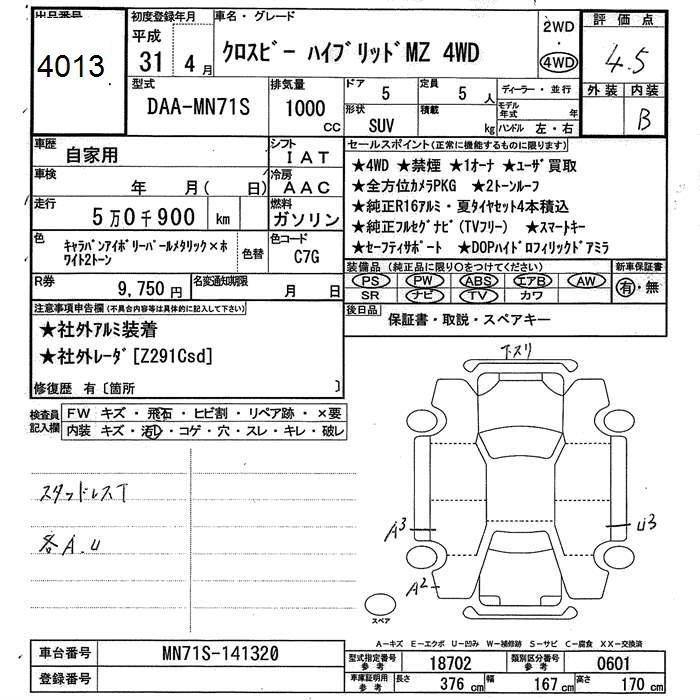 出品番号
4013
初度登録年月
平成
31 4 月
車名・グレード
クロスビー ハイブリッドMZ 4WD
2WD
・
4WD
評価点
4.5
外装 内装
B
型式
DAA-MN71S
排気量
1000
CC
ドア
5
定員
5 人
形状
SUV
積載
kg
ディーラー・並行
モデル年式 年
ハンドル 左・右
車歴
自家用
シフト
IAT
車検
年 月( 日)
冷房
AAC
走行
5万0千900 km
燃料
ガソリン
色
キャラバンアイボリーパールメタリック×ホ
ワイト2トーン
色替
色コード
C7G
R券
9,750 円
名変通知期限
月 日
セールスポイント(正常に機能するものに限ります)
★4WD ★禁煙 ★1オーナ ★ユーザ買取
★全方位カメラPKG ★2トーンルーフ
★純正R16アルミ・夏タイヤセット4本積込
★純正フルセグナビ(TVフリー) ★スマートキー
★セーフティサポート ★DOPハイドロフィリックドアミラ
装備品(純正品に限り○をつけてください)
PS PW ABS エアB AW
SR ナビ TV カワ
新車保証書
有・無
後日品
保証書・取説・スペアキー
注意事項申告欄(不具合内容等は具体的に記入して下さい)
★社外アルミ装着
★社外レーダ[Z291Csd]
修復歴 有〔箇所 〕
検査員
記入欄
FW キズ・飛石・ヒビ割・リペア跡・×要
内装 キズ・汚レ・コゲ・穴・スレ・キレ・破レ
スタッドレスT
各A.U
下スリ
A3
U3
A2
スペア
A-キズ E-エクボ U-凹み W-補修跡 S-サビ C-腐食 XX-交換済
車台番号
MN71S-141320
登録番号
型式指定番号
参考
18702
類別区分番号
参考
0601
車庫証明用
参考
長さ 376 cm 幅 167 cm 高さ 170 cm